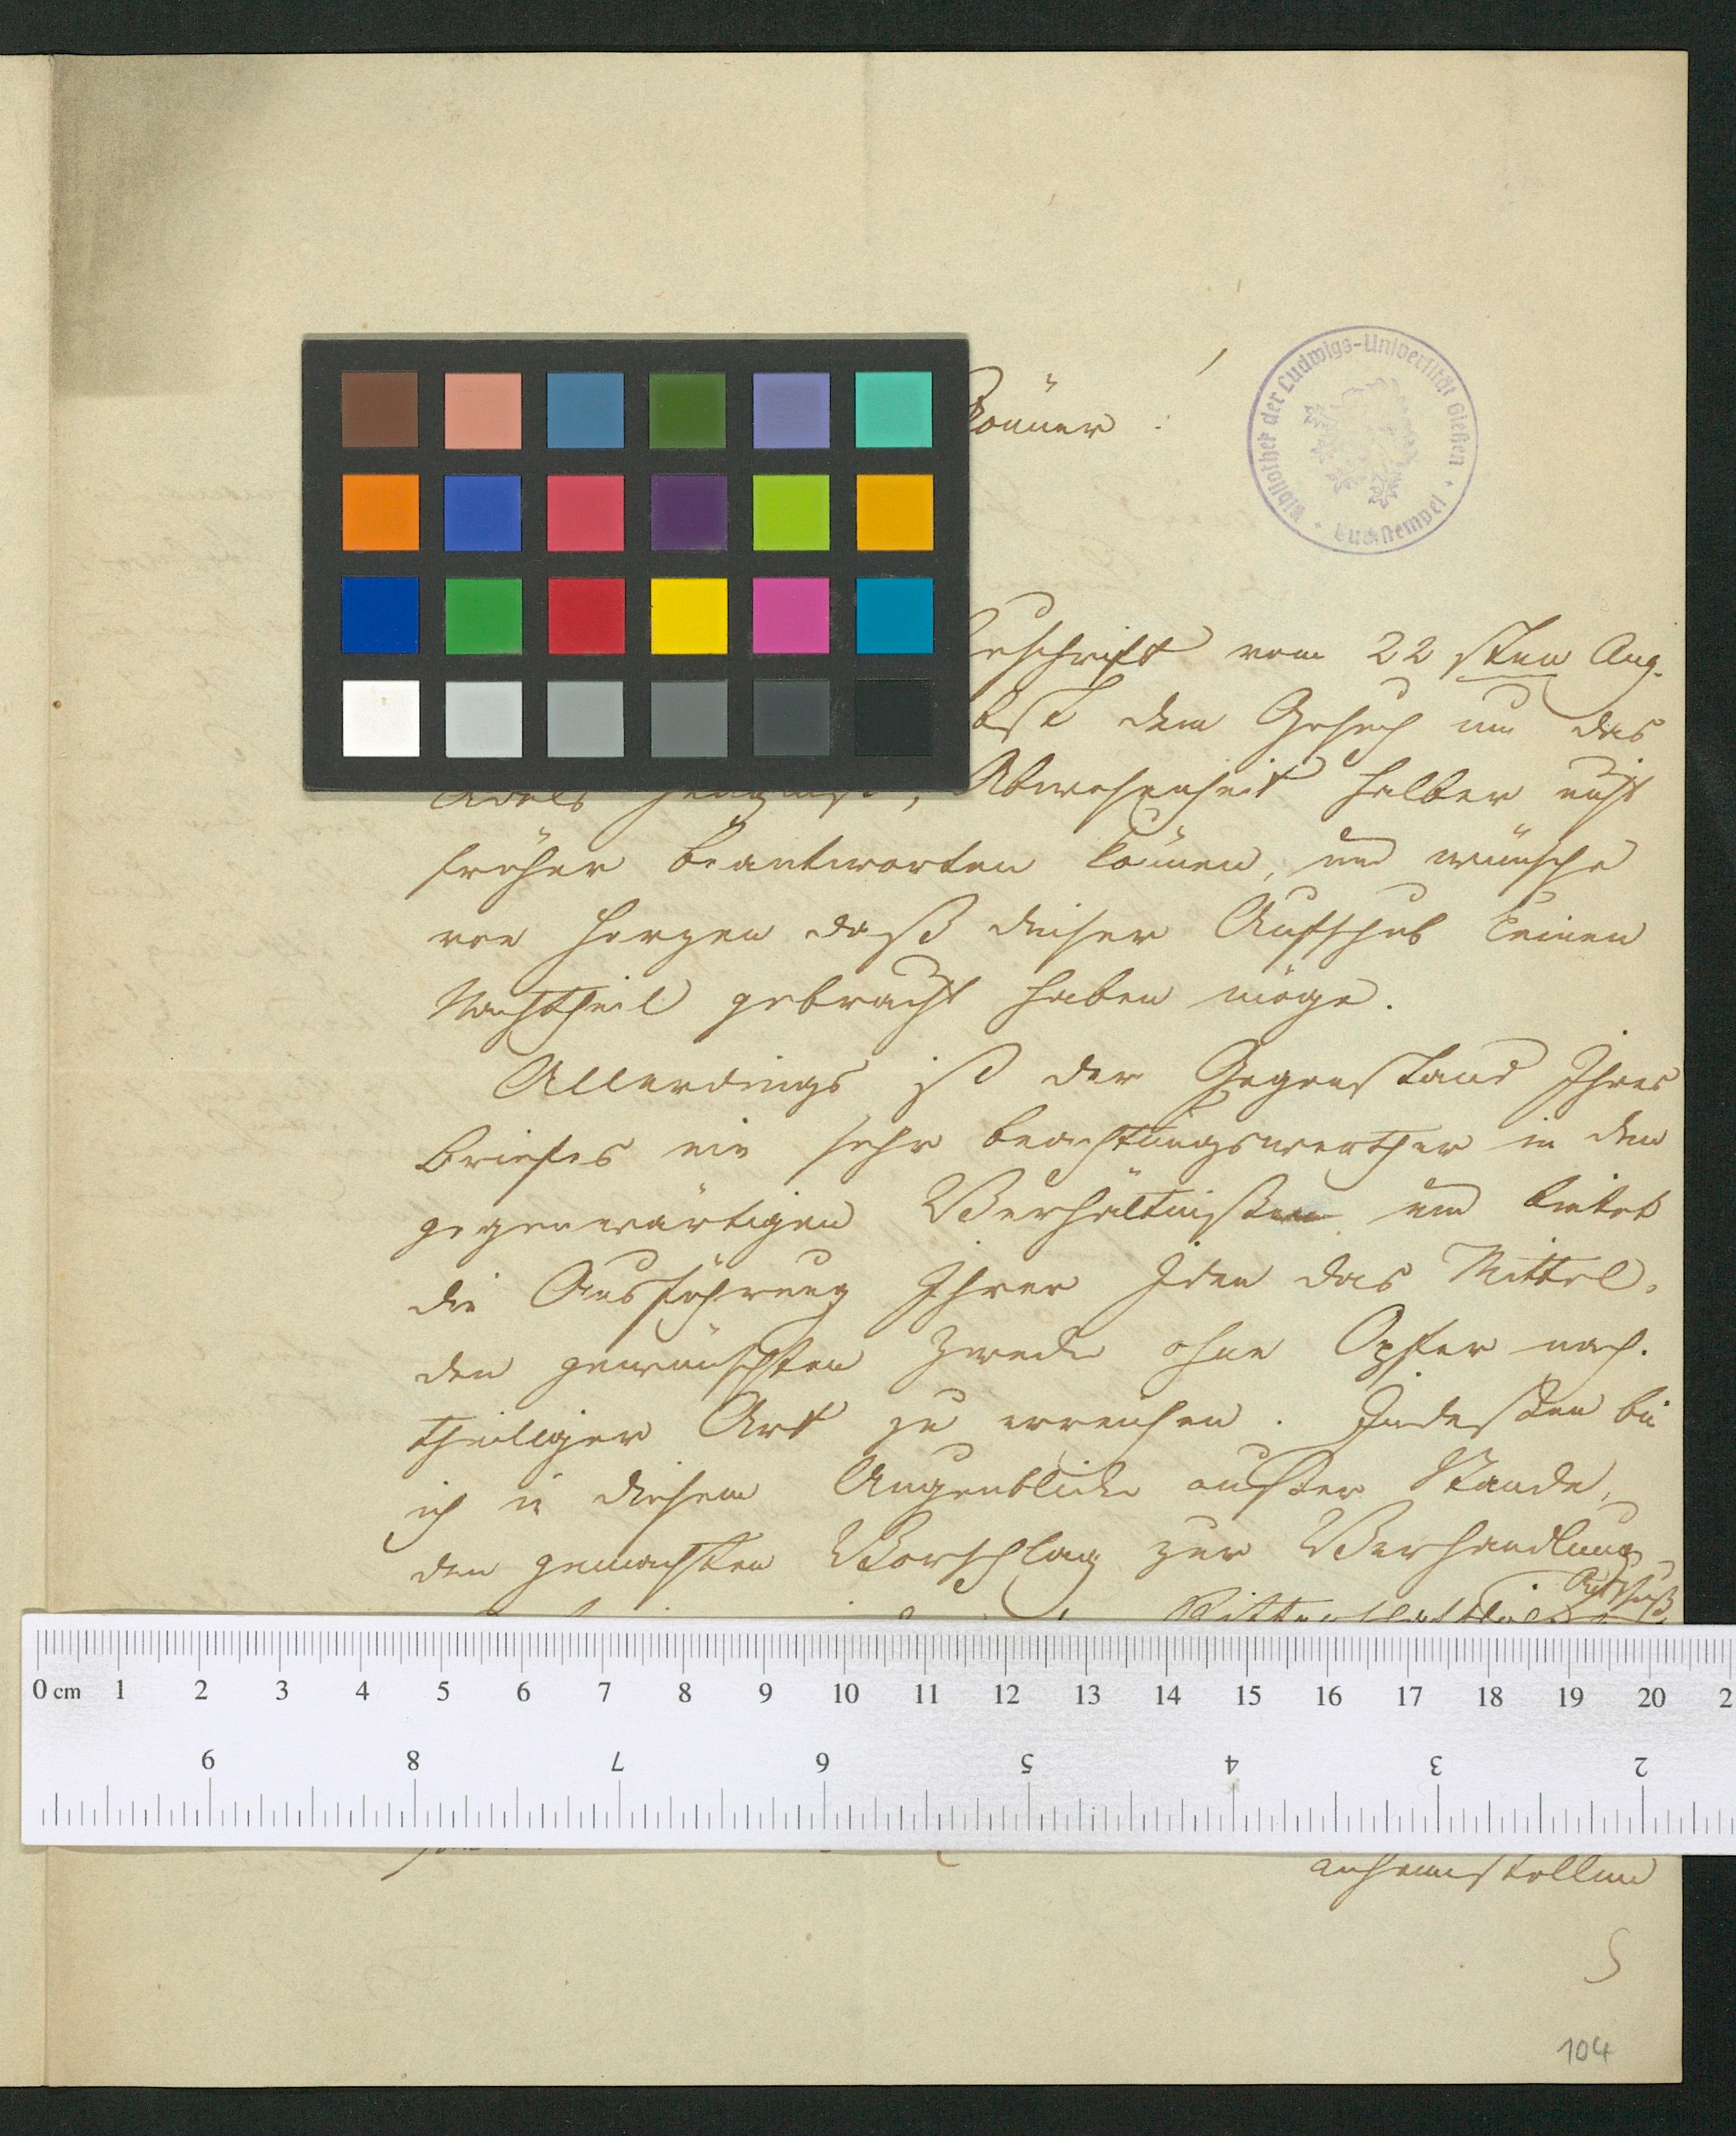 Bibliothek der Ludwigs-Universität Gießen
Buchstempel
Gönner
Zuschrift vom 22 sten Aug.
dem Gesuch um das
Adels Zeugniß, Abwesenheit halber nicht
früher beantworten können, und wünsche
von Herzen daß dieser Aufschub keinen
Nachtheil gebracht haben möge.
Allerdings ist der Gegenstand Ihres
Briefes ein sehr beachtungswerther in den
gegenwärtigen Verhältnißen und bietet
die Ausführung Ihrer Idee das Mittel,
den gewünschten Zweck ohne Opfer nach-
theiliger Art zu erreichen. Indessen bin
ich in diesem Augenblicke ausser Stande,
den gemachten Vorschlag zur Verhandlung
Ausschuß
0 cm 1 2 3 4 5 6 7 8 9 10 11 12 13 14 15 16 17 18 19 20 2
9 8 7 6 5 4 3 2
anheimstellend
104